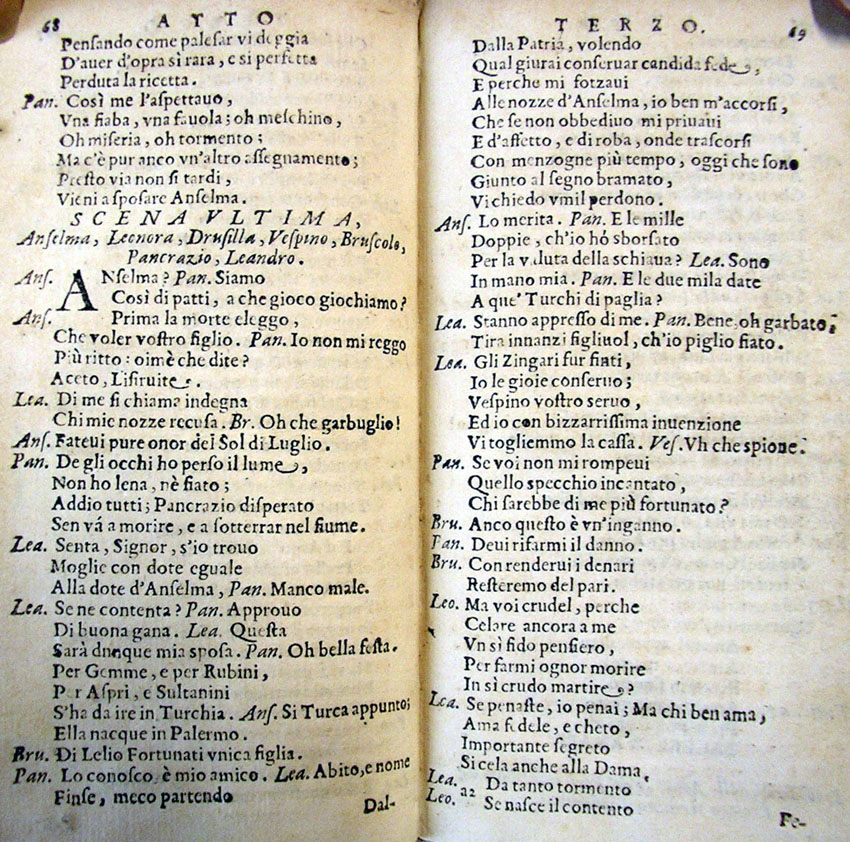 68 ATTO
Pensando come palesar vi deggia
D'auer d'opra sì rara, e sì perfetta
Perduta la ricetta.
Pan. Così me l'aspettauo,
Vna fiaba, vna fauola; oh meschino,
Oh miseria, oh tormento;
Ma c'è pur anco vn'altro assegnamento;
Presto via non si tardi,
Vieni a sposare Anselma.
SCENA VLTIMA,
Anselma, Leonora, Drusilla, Vespino, Bruscolo,
Pancrazio, Leandro.
Ans. ANselma? Pan. Siamo
Così di patti, a che gioco giochiamo?
Ans. Prima la morte eleggo,
Che voler vostro figlio. Pan. Io non mi reggo
Più ritto: oimè che dite?
Aceto, Lisiruite.
Lea. Di me si chiama indegna
Chi mie nozze recusa. Br. Oh che garbuglio!
Ans. Fateui pure onor del Sol di Luglio.
Pan. De gli occhi ho perso il lume,
Non ho lena, nè fiato;
Addio tutti; Pancrazio disperato
Sen và a morire, e a sotterrar nel fiume.
Lea. Senta, Signor, s'io trouo
Moglie con dote eguale
Alla dote d'Anselma, Pan. Manco male.
Lea. Se ne contenta? Pan. Approuo
Di buona gana. Lea. Questa
Sarà dunque mia sposa. Pan. Oh bella festa.
Per Gemme, e per Rubini,
Per Aspri, e Sultanini
S'ha da ire in Turchia. Ans. Si Turca appunto;
Ella nacque in Palermo.
Bru. Di Lelio Fortunati vnica figlia.
Pan. Lo conosco, è mio amico. Lea. Abito, e nome
Finse, meco partendo
Dal-
TERZO. 69
Dalla Patria, volendo
Qual giurai conseruar candida fede,
E perche mi forzaui
Alle nozze d'Anselma, io ben m'accorsi,
Che se non obbediuo mi priuaui
E d'affetto, e di roba, onde trascorsi
Con menzogne più tempo, oggi che sono
Giunto al segno bramato,
Vi chiedo vmil perdono.
Ans. Lo merita. Pan. E le mille
Doppie, ch'io hò sborsato
Per la valuta della schiaua? Lea. Sono
In mano mia. Pan. E le due mila date
A que' Turchi di paglia?
Lea. Stanno appresso di me. Pan. Bene, oh garbato;
Tira innanzi figliuol, ch'io piglio fiato.
Lea. Gli Zingari fur finti,
Io le gioie conseruo;
Vespino vostro seruo,
Ed io con bizzarrissima inuenzione
Vi togliemmo la cassa. Ves. Vh che spione.
Pan. Se voi non mi rompeui
Quello specchio incantato,
Chi sarebbe di me più fortunato?
Bru. Anco questo è vn'inganno.
Pan. Deui rifarmi il danno.
Bru. Con renderui i denari
Resteremo del pari.
Leo. Ma voi crudel, perche
Celare ancora a me
Vn sì fido pensiero,
Per farmi ognor morire
In sì crudo martire?
Lea. Se penaste, io penai; Ma chi ben ama,
Ama fedele, e cheto,
Importante segreto
Si cela anche alla Dama.
Lea. a2 Da tanto tormento
Leo. Se nasce il contento
Fe-